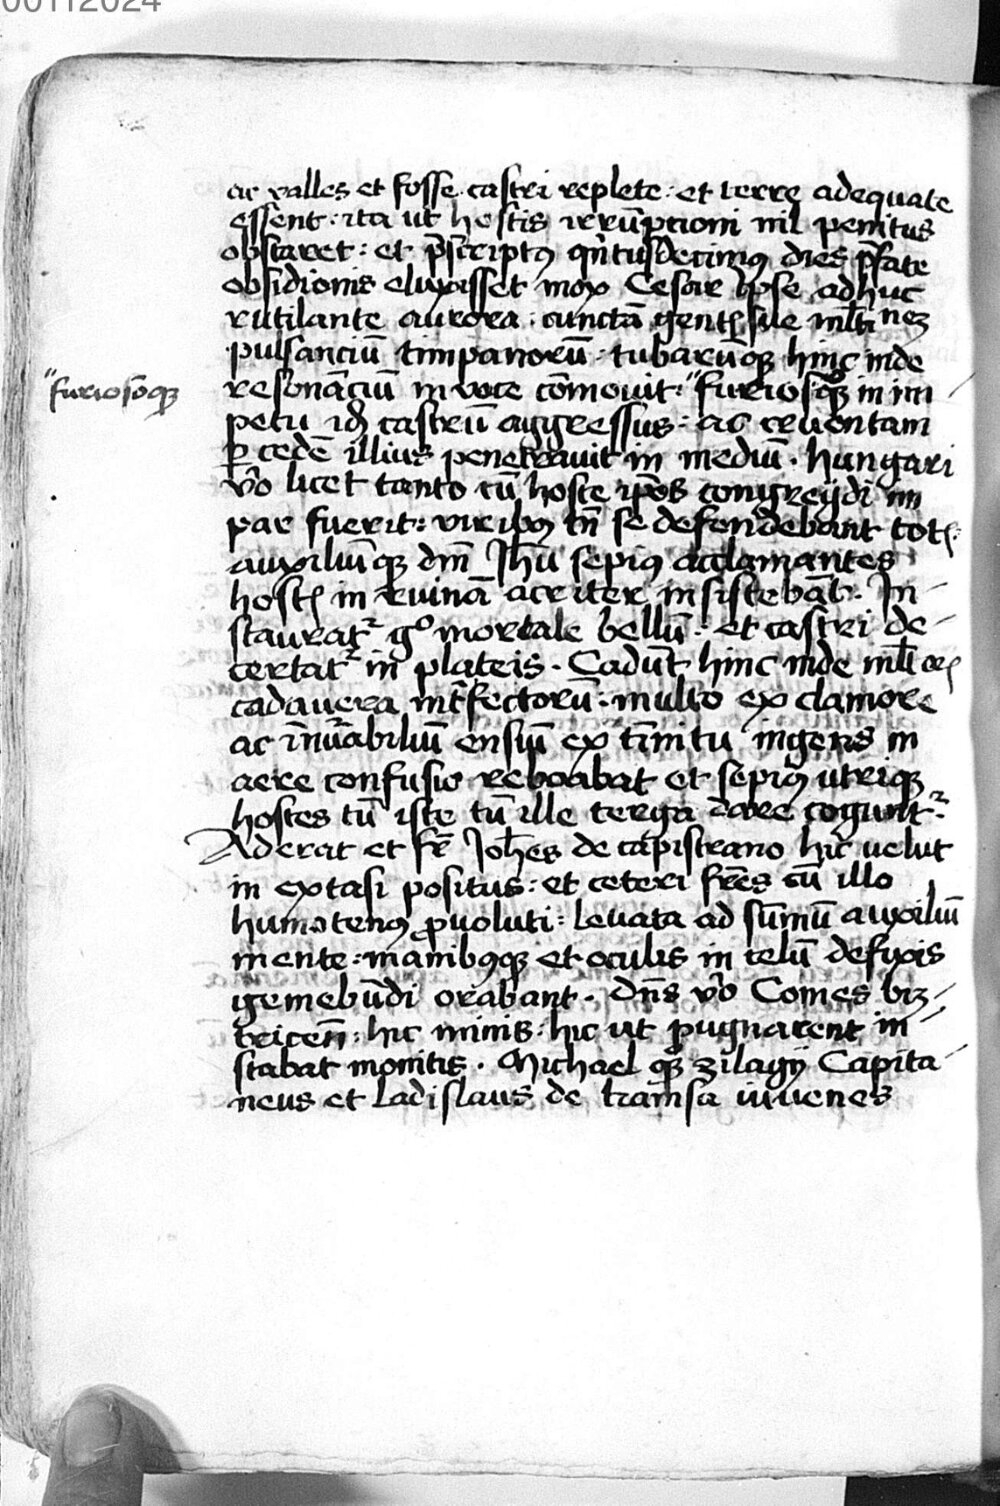 00112024
ac valles et fosse castri replete : et terre adequate
essent : ita ut hostis irrūptioni nil penitus
obstaret : et p̄scriptꝯ qn̄tusdecimꝯ dies p̄fate
obsidionis eluxisset mox Cesar ipse adhuc
rutilante aurora : cunctā gentē sue
pulsanciū timpanorū : tubarūqꝫ hinc inde
resonāciū in voce cōmovit : "furiosoqꝫ in im
"furiosoqꝫ
petu idē castrū aggressus : ac cruentam
ꝑ cedē illius penetravit in mediū . hungari
v̄o licet tanto cū hoste ip̄os congredi im
par fuerit : viribꝯ tn̄ se defendebant
auxiliūqꝫ dn̄i Jhū sepiꝯ acclamantes
hostē in ruinā acriter insistebāt . In
stauratᷣ gͦ mortale bellū : et castri de
certatᷣ in plateis . Cadūt hinc inde
cadavera int̄fectorū : multo ex clamore
ac īnūabiliū ensiū ex tīnitu ingens in
aere confusio reboabat et sepiꝯ utrique
hostes tū iste tū ille terga dare coguntᷣ :
Aderat et fr̄ Joh̄es de capistrano hic velut
in extasi positus : et ceteri fr̄es cū illo
humotenꝯ ꝓvoluti : levata ad sūmū auxiliū
mente : manibꝯqꝫ et oculis in celū defixis
gemebūdi orabant . dn̄s v̄o Comes biz
tricen̄ : hic minis : hic ut pugnarent in
stabat monitis . Michael qꝫ zilagÿ Capita
neus et Ladislaus de iuvenes